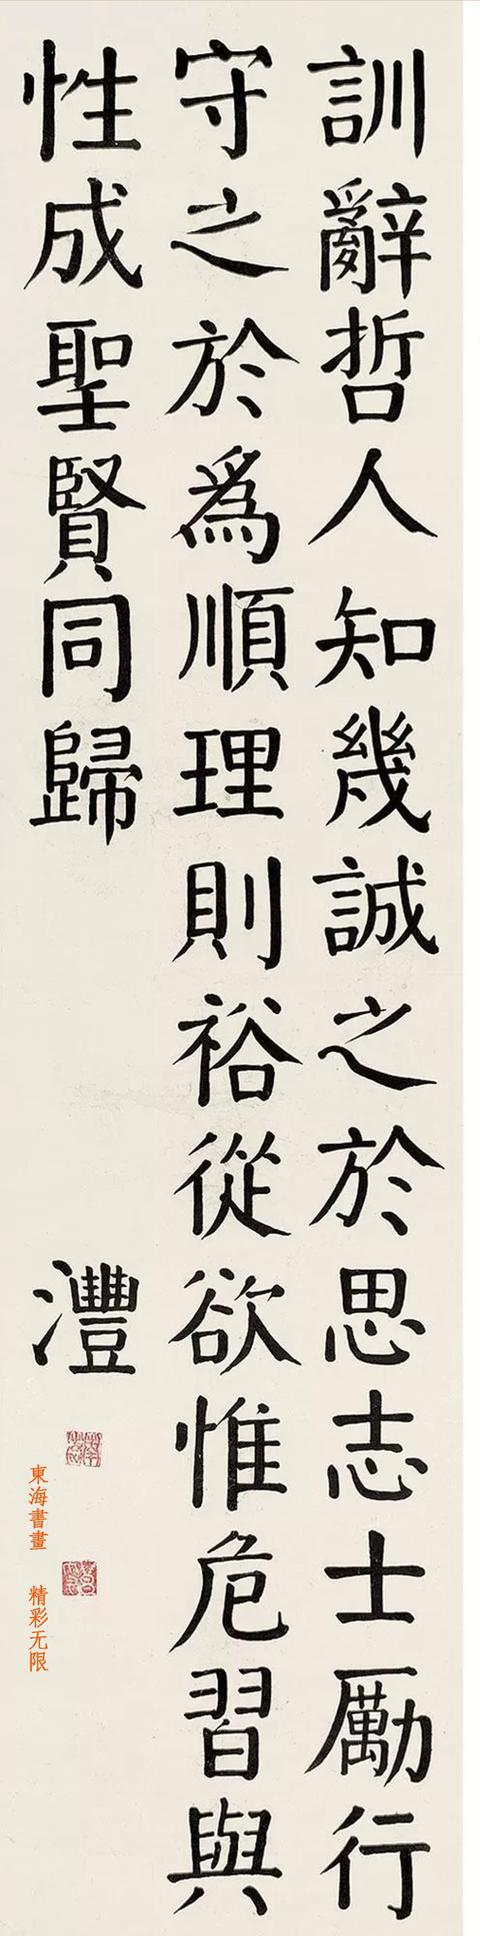 訓辭哲人知幾誠之於思志士厲行
守之於為順理則裕從欲惟危習與
性成聖賢同歸
灃
東海書畫 精彩无限